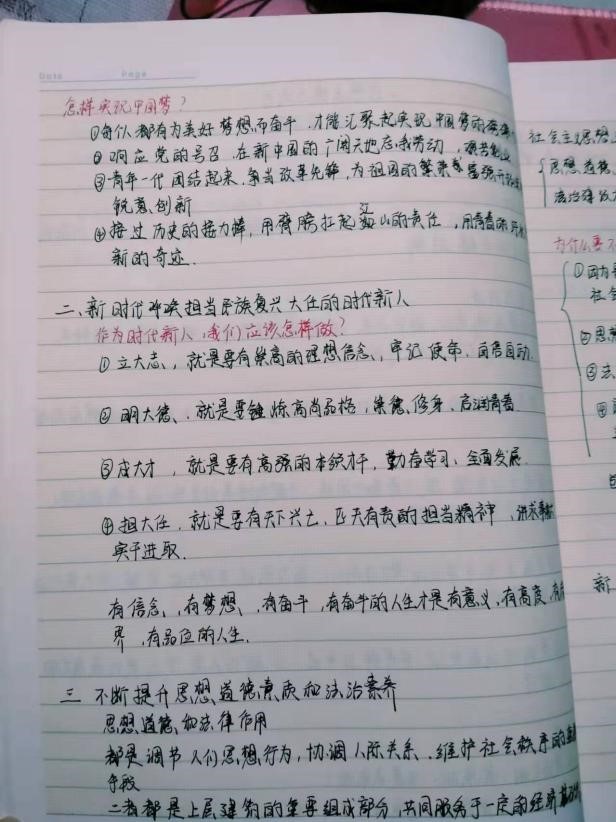 Date Page
怎样实现中国梦？
①每个人都有为美好梦想而奋斗，才能汇聚起实现中国梦的
②响应党的号召，在新中国的广阔天地忘我劳动，艰苦创业
③青年一代团结起来，争当改革先锋，为祖国的繁荣富强开拓
锐意创新
④接过历史的接力棒，用臂膀扛起江山的责任，用青春
新的奇迹.
二、新时代呼唤担当民族复兴大任的时代新人
作为时代新人，我们应该怎样做？
①立大志，就是要有崇高的理想信念，牢记使命，自信自励.
②明大德，就是要锤炼高尚品格，崇德修身，启润青春.
③成大才，就是要有高强的本领才干，勤奋学习、全面发展.
④担大任，就是要有天下兴亡，匹夫有责的担当精神，讲求奉献
实干进取.
有信念、有梦想、有奋斗，有奋斗的人生才是有意义，有高度，有
界，有品位的人生.
三 不断提升思想道德素质和法治素养
思想道德和法律作用
都是调节人们思想行为，协调人际关系，维护社会秩序的重要
手段
二者都是上层建筑的重要组成部分，共同服务于一定的经济基础
社会主义思想
思想道德、
法治
为什么要
①因为
社会
②思想
③法
④
新